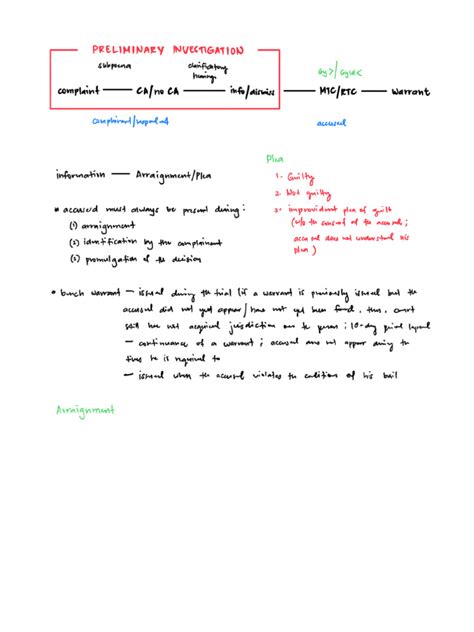 PRELIMINARY INVESTIGATION
subpoena clarificatory hearing
complaint — CA/no CA — info/dismiss — MTC/RTC — warrant
complainant/respondent accused
Plea
information — Arraignment/Plea
1. Guilty
2. Not guilty
* accused must always be present during:
3. improvident plea of guilt
(1) arraignment
(w/o the consent of the accused;
(2) identification by the complainant
accused does not understand his
(3) promulgation of the decision
plea)
* bench warrant — issued during the trial (if a warrant is previously issued but the
accused did not yet appear/has not yet been found, thus, court
still has not acquired jurisdiction over the person; 10-day period
— continuance of a warrant; accused does not appear during the
times he is required to
— issued when the accused violates the condition of his bail
Arraignment